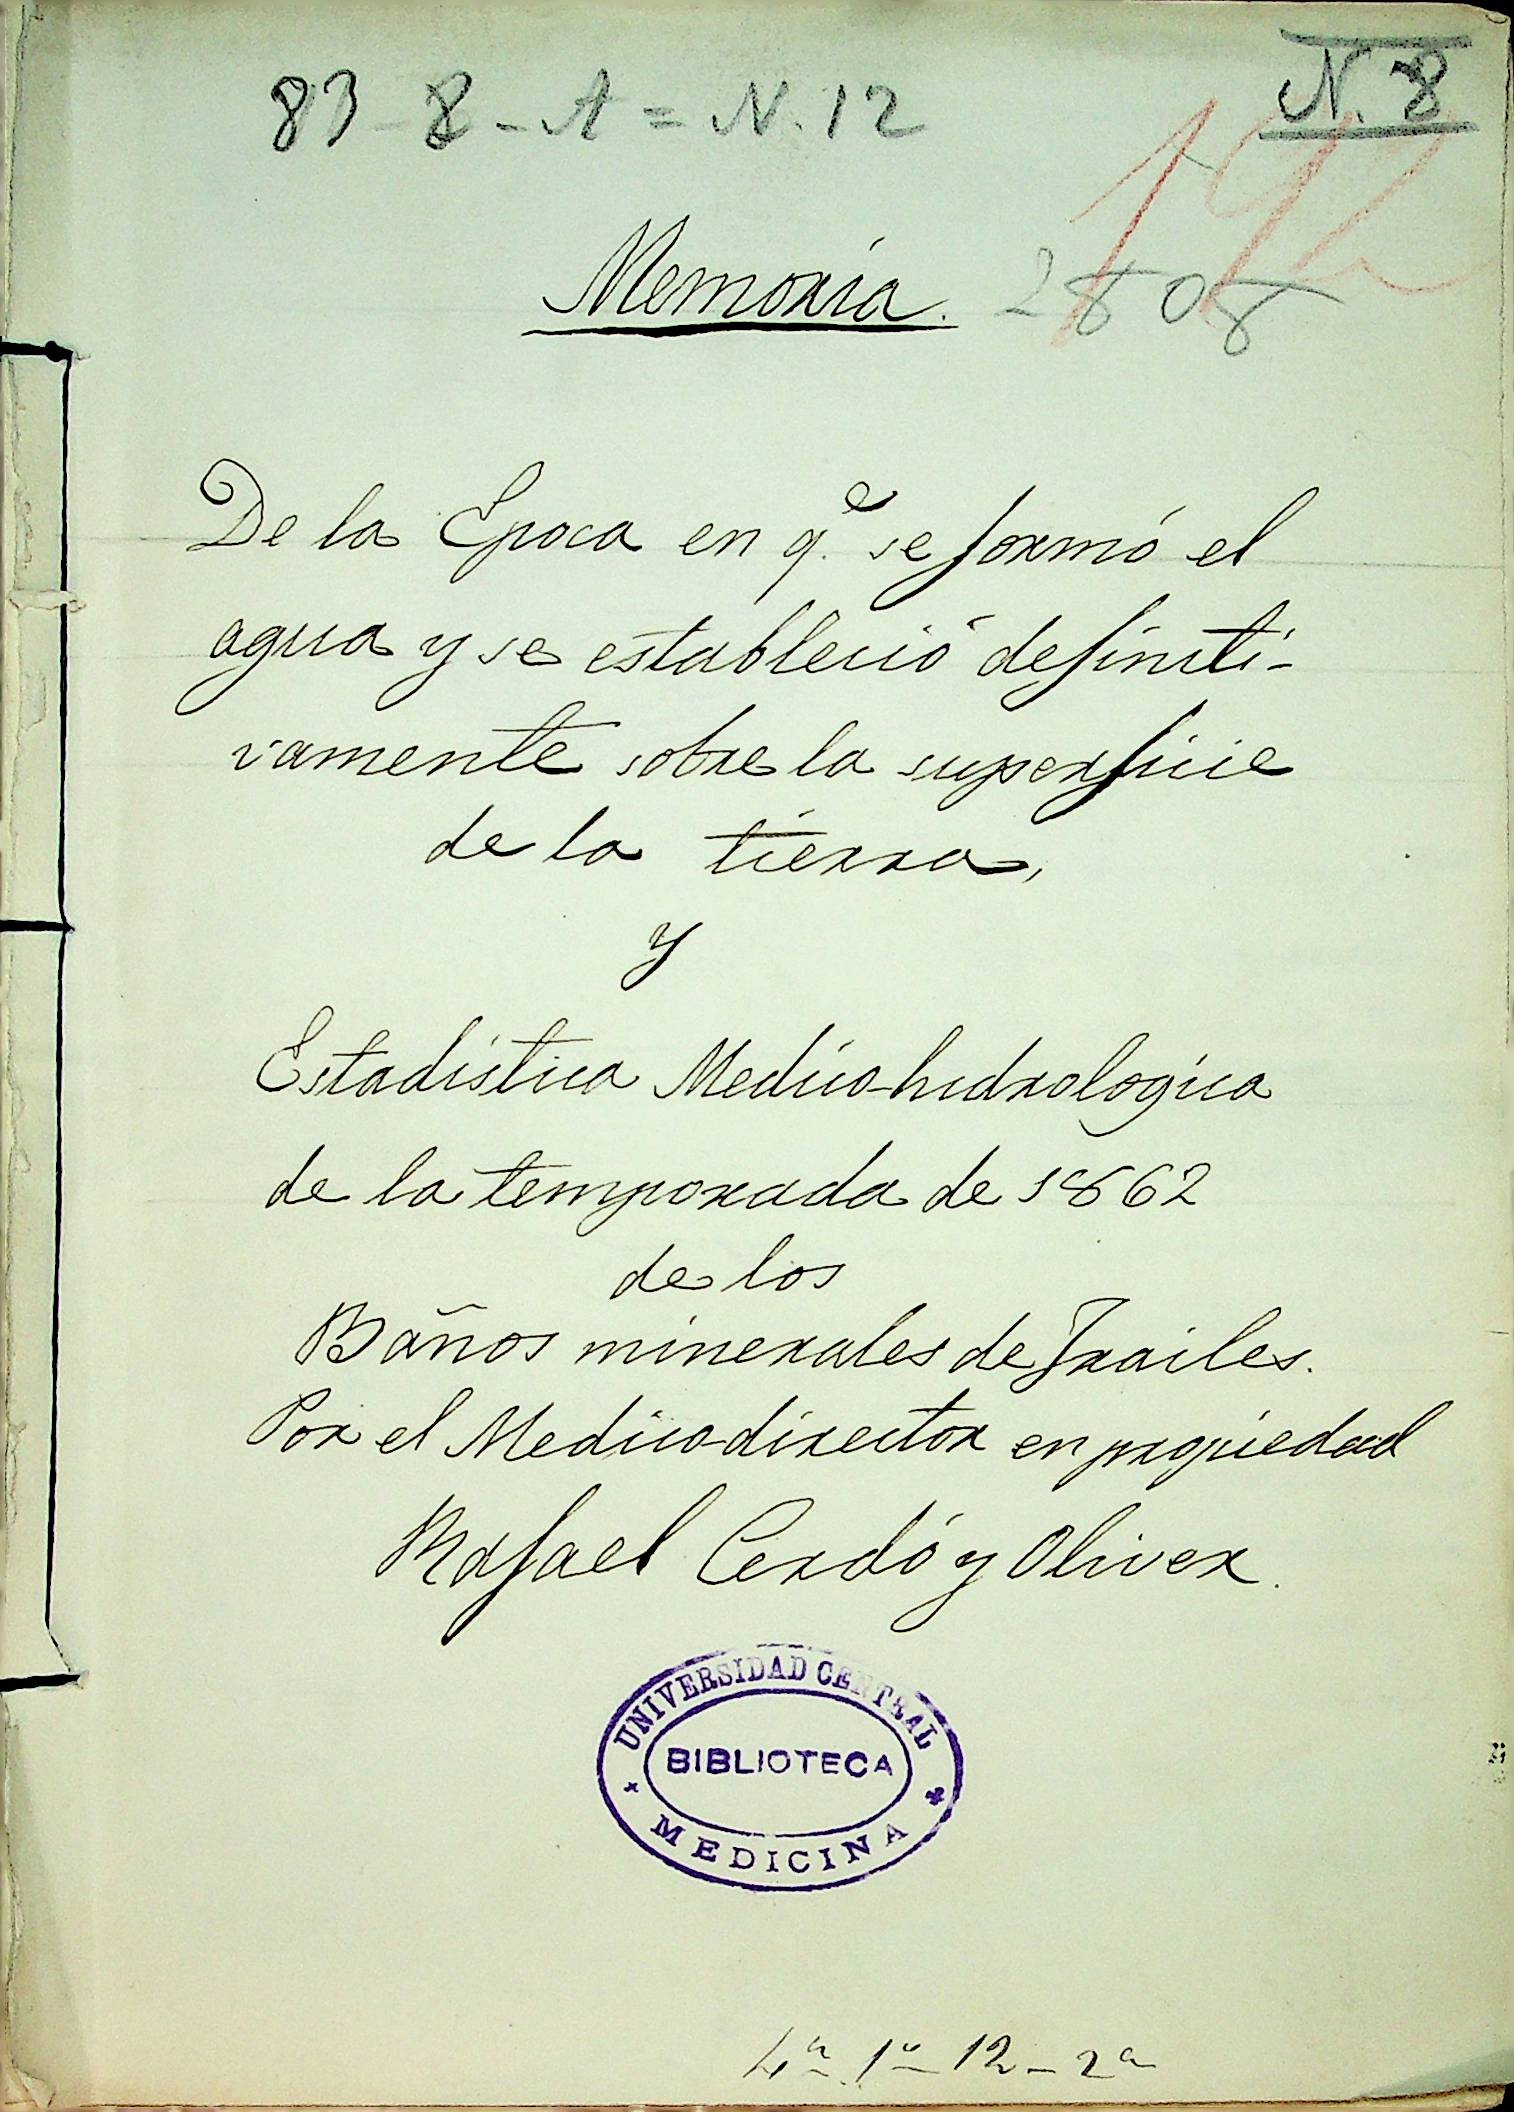 83-8-A=N.12
N. 8
192
2808
Memoria.
De la Epoca en q.e se formó el
agua y se estableció definiti-
vamente sobre la superficie
de la tierra,
y
Estadística Medico-hidrologica
de la temporada de 1862
de los
Baños minerales de Frailes.
Por el Medico-director en propiedad
Rafael Cerdó y Oliver.
UNIVERSIDAD CENTRAL
BIBLIOTECA
MEDICINA
4a 1a 12-2a